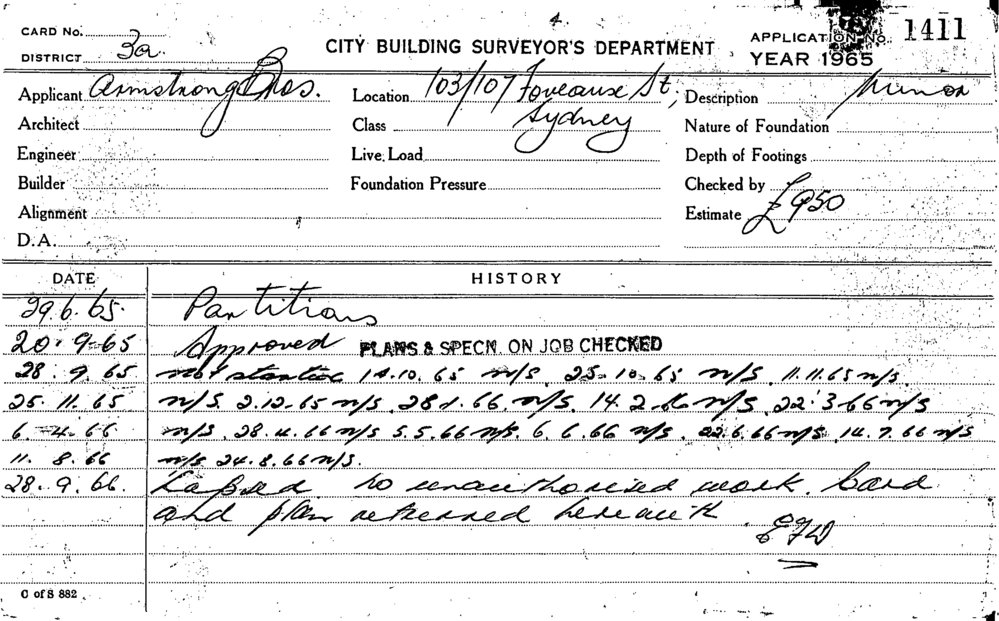 4.
CARD No. CITY BUILDING SURVEYOR'S DEPARTMENT APPLICATION No. 1411
DISTRICT 3a YEAR 1965
Applicant Armstrong Bros. Location 103/107 Foveaux St, Description Minor
Architect Class Sydney Nature of Foundation
Engineer Live Load Depth of Footings
Builder Foundation Pressure Checked by
Alignment Estimate £950
D.A.
DATE HISTORY
29.6.65. Partitions
20.9.65 Approved PLANS & SPECN. ON JOB CHECKED
28.9.65 not started 14.10.65 n/s. 25.10.65 n/s. 11.11.65 n/s.
25.11.65 n/s. 2.12.65 n/s 28.1.66. n/s. 14.2.66 n/s 22.3.66 n/s
6.4.66 n/s. 28.4.66 n/s 5.5.66 n/s. 6.6.66 n/s. 22.6.66 n/s. 14.7.66 n/s
11.8.66 n/s 24.8.66 n/s.
28.9.66. Lapsed. no unauthorised work. Card
and plan returned herewith
EFW
C of S 882